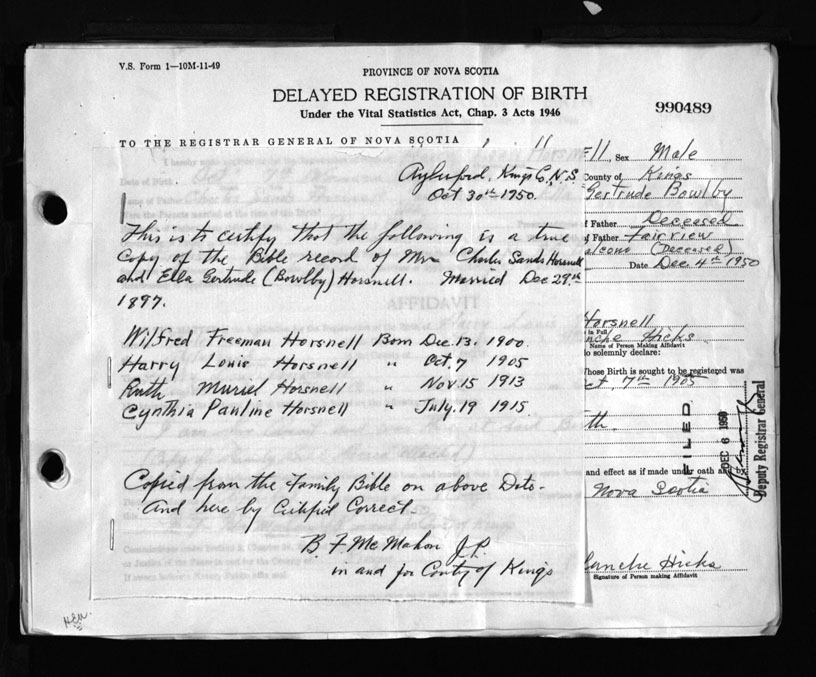 V.S. Form 1—10M-11-49
PROVINCE OF NOVA SCOTIA
DELAYED REGISTRATION OF BIRTH
Under the Vital Statistics Act, Chap. 3 Acts 1946
990489
TO THE REGISTRAR GENERAL OF NOVA SCOTIA
Aylesford, Kings Co, N.S.
Oct 30th 1950.
This is to certify that the following is a true
Copy of the Bible record of Mr Charles Sands Horsnell
and Ella Gertrude (Bowlby) Horsnell. Married Dec 29th
1897.
Wilfred Freeman Horsnell Born Dec. 13. 1900.
Harry Louis Horsnell " Oct. 7 1905
Ruth Muriel Horsnell " Nov 15 1913
Cynthia Pauline Horsnell " July. 19 1915
Copied from the Family Bible on above Date.
And here by Certified Correct.
B. F. McMahon J.P.
in and for County of Kings
ll, Sex Male
County of Kings
Gertrude Bowlby
of Father Deceased
of Father Fairview
(Deceased)
Date Dec. 4th 1950
Horsnell
in Full
Hicks
Name of Person Making Affidavit
do solemnly declare:
hose Birth is sought to be registered was
ct, 7th 1905
th.
and effect as if made under oath and by
Nova Scotia
lanche Hicks
Signature of Person making Affidavit
FILED
DEC 6 1950
Deputy Registrar General